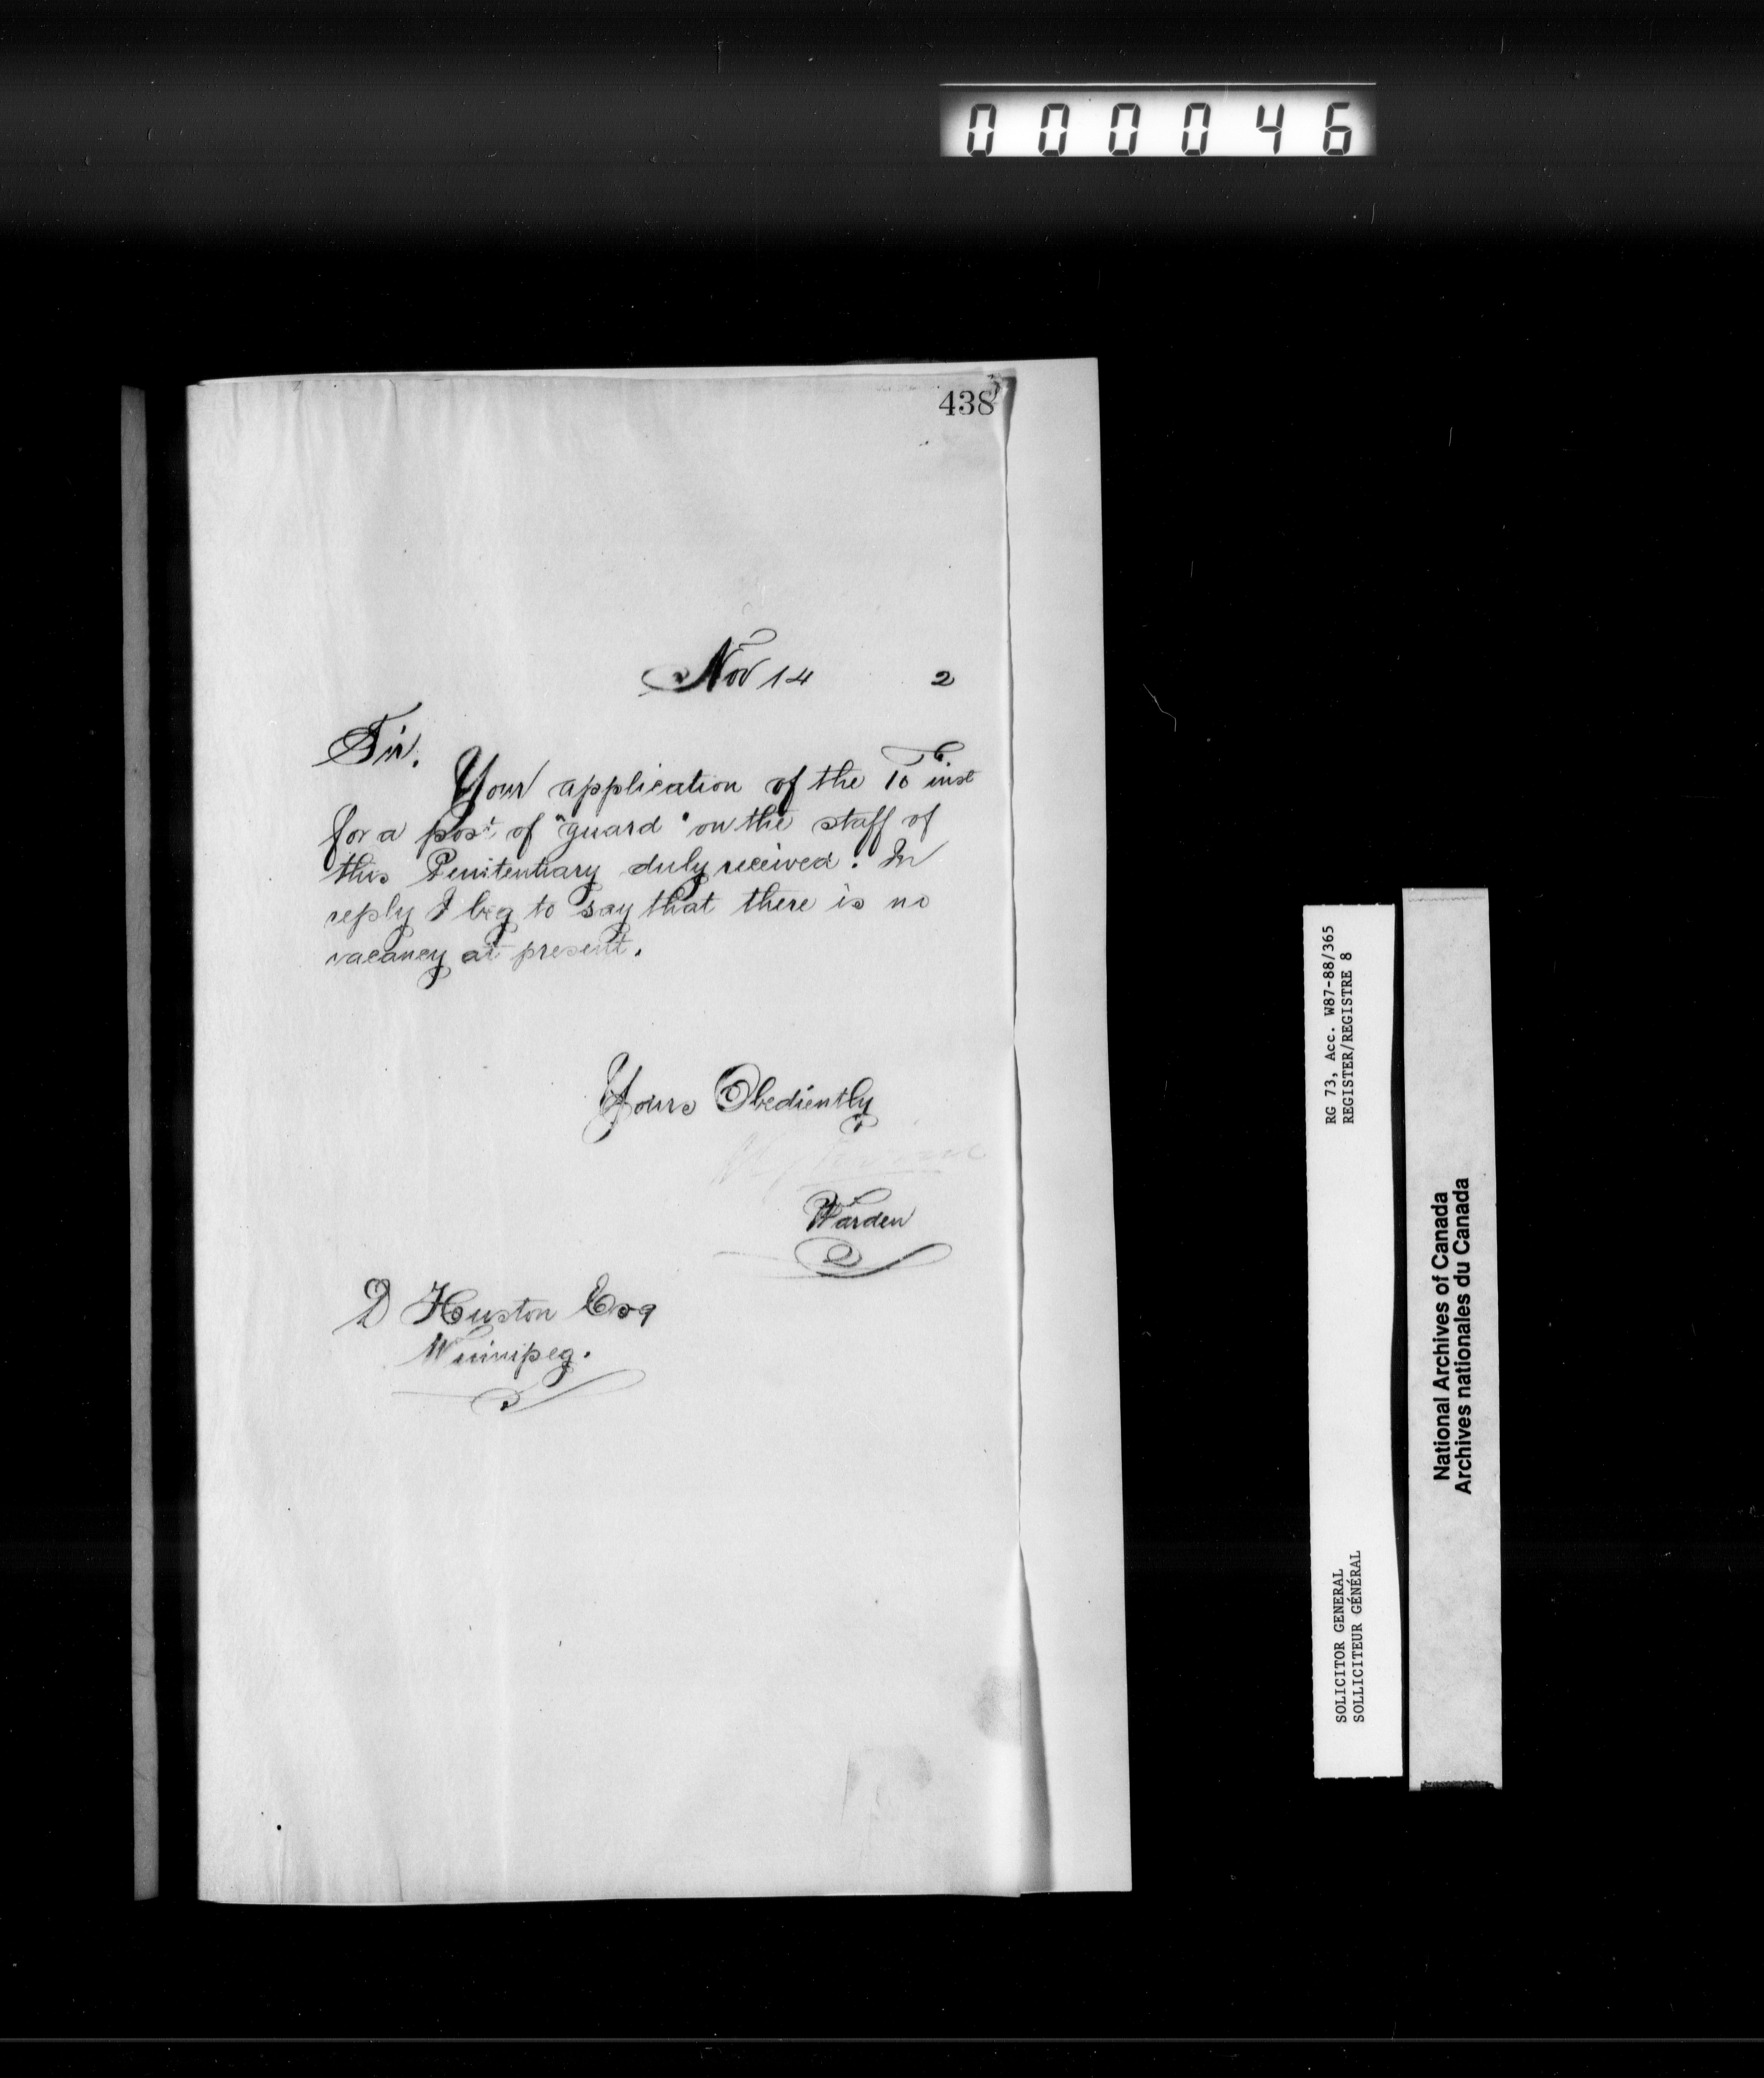 000046
438
Nov 14 2
Sir.
Your application of the 10th inst
for a post of "guard" on the staff of
this Penitentiary duly received. In
reply I beg to say that there is no
vacancy at present.
Yours Obediently
Warden
D Huston Esq
Winnipeg.
RG 73, Acc. W87-88/365
REGISTER/REGISTRE 8
SOLICITOR GENERAL
SOLLICITEUR GÉNÉRAL
National Archives of Canada
Archives nationales du Canada